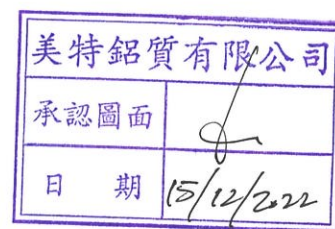 美特鋁質有限公司
承認圖面
日期 15/12/2022